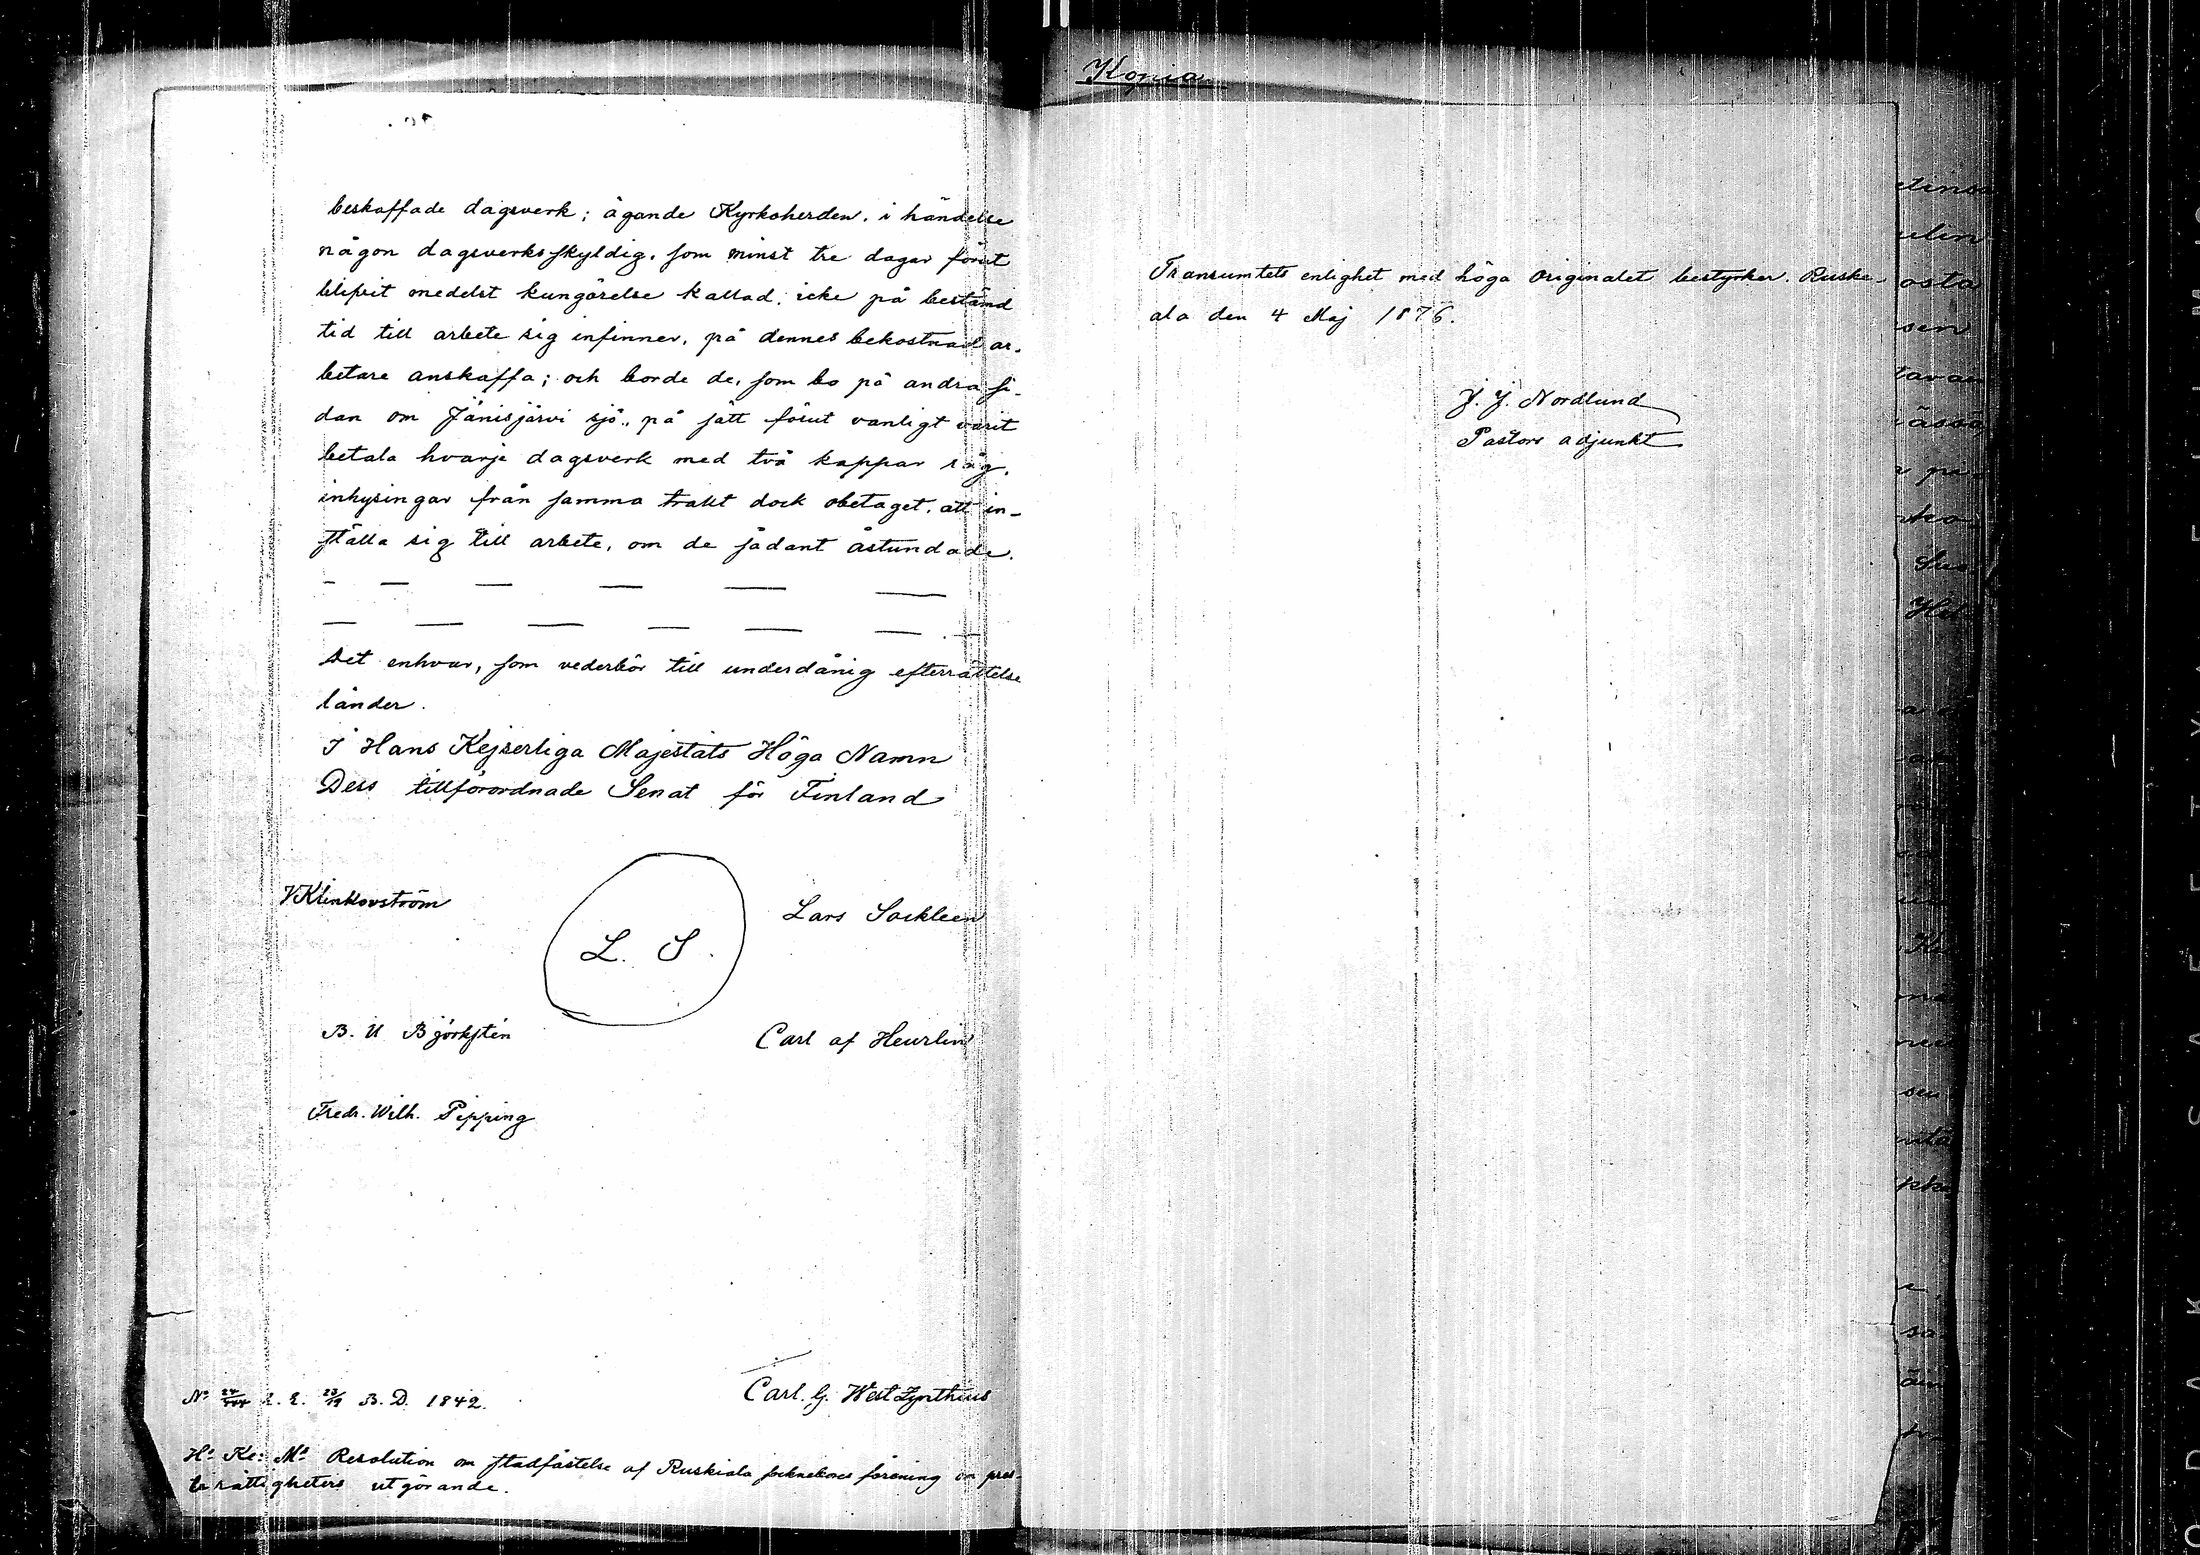 beskaffade dagsverk; ägande Kyrkoherden, i händelse
någon dagsverksskyldig, som minst tre dagar förut
blifvit medelst kungörelse kallad, icke på bestämd
tid till arbete sig infinner, på dennes bekostnad ar-
betare anskaffa; och borde de, som bo på andra si-
dan om Jänisjärvi sjö, på sätt förut vanligt varit
betala hvarje dagsverk med två kappar råg,
inhysingar från samma trakt dock obetaget, att in-
ställa sig till arbete, om de sådant åstundade.
— — — — — —
— — — — — — . —
Det enhvar, som vederbör till underdånig efterrättelse
länder.
I Hans Kejserliga Majestäts Höga Namn
Dess tillförordnade Senat för Finland
V Klinkovström
Lars Sackleen
L. S.
B. U Björksten
Carl af Heurlin
Fredr. Wilh. Pipping
Carl. G. West Zynthius
B. D. 1842.
Hs Ke: Ms Resolution om stadfästelse af Ruskiala sockneboers förening om pres-
terättigheters utgörande.
Kopia
Transumtets enlighet med höga Originalet bestyrker. Ruske-
ala den 4 Maj 1876.
J. J. Nordlund
Pastors adjunkt
osta
sen